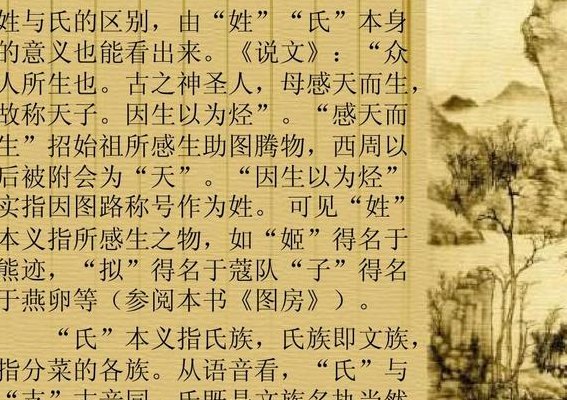 姓与氏的区别，由“姓”“氏”本身
的意义也能看出来。《说文》：“众
人所生也。古之神圣人，母感天而生，
故称天子。因生以为烃”。“感天而
生”招始祖所感生助图腾物，西周以
后被附会为“天”。“因生以为烃”
实指因图路称号作为姓。 可见“姓”
本义指所感生之物，如“姬”得名于
熊迹，“拟”得名于蔻队“子”得名
于燕卵等（参阅本书《图房》）。
“氏”本义指氏族，氏族即文族，
指分菜的各族。从语音看，“氏”与